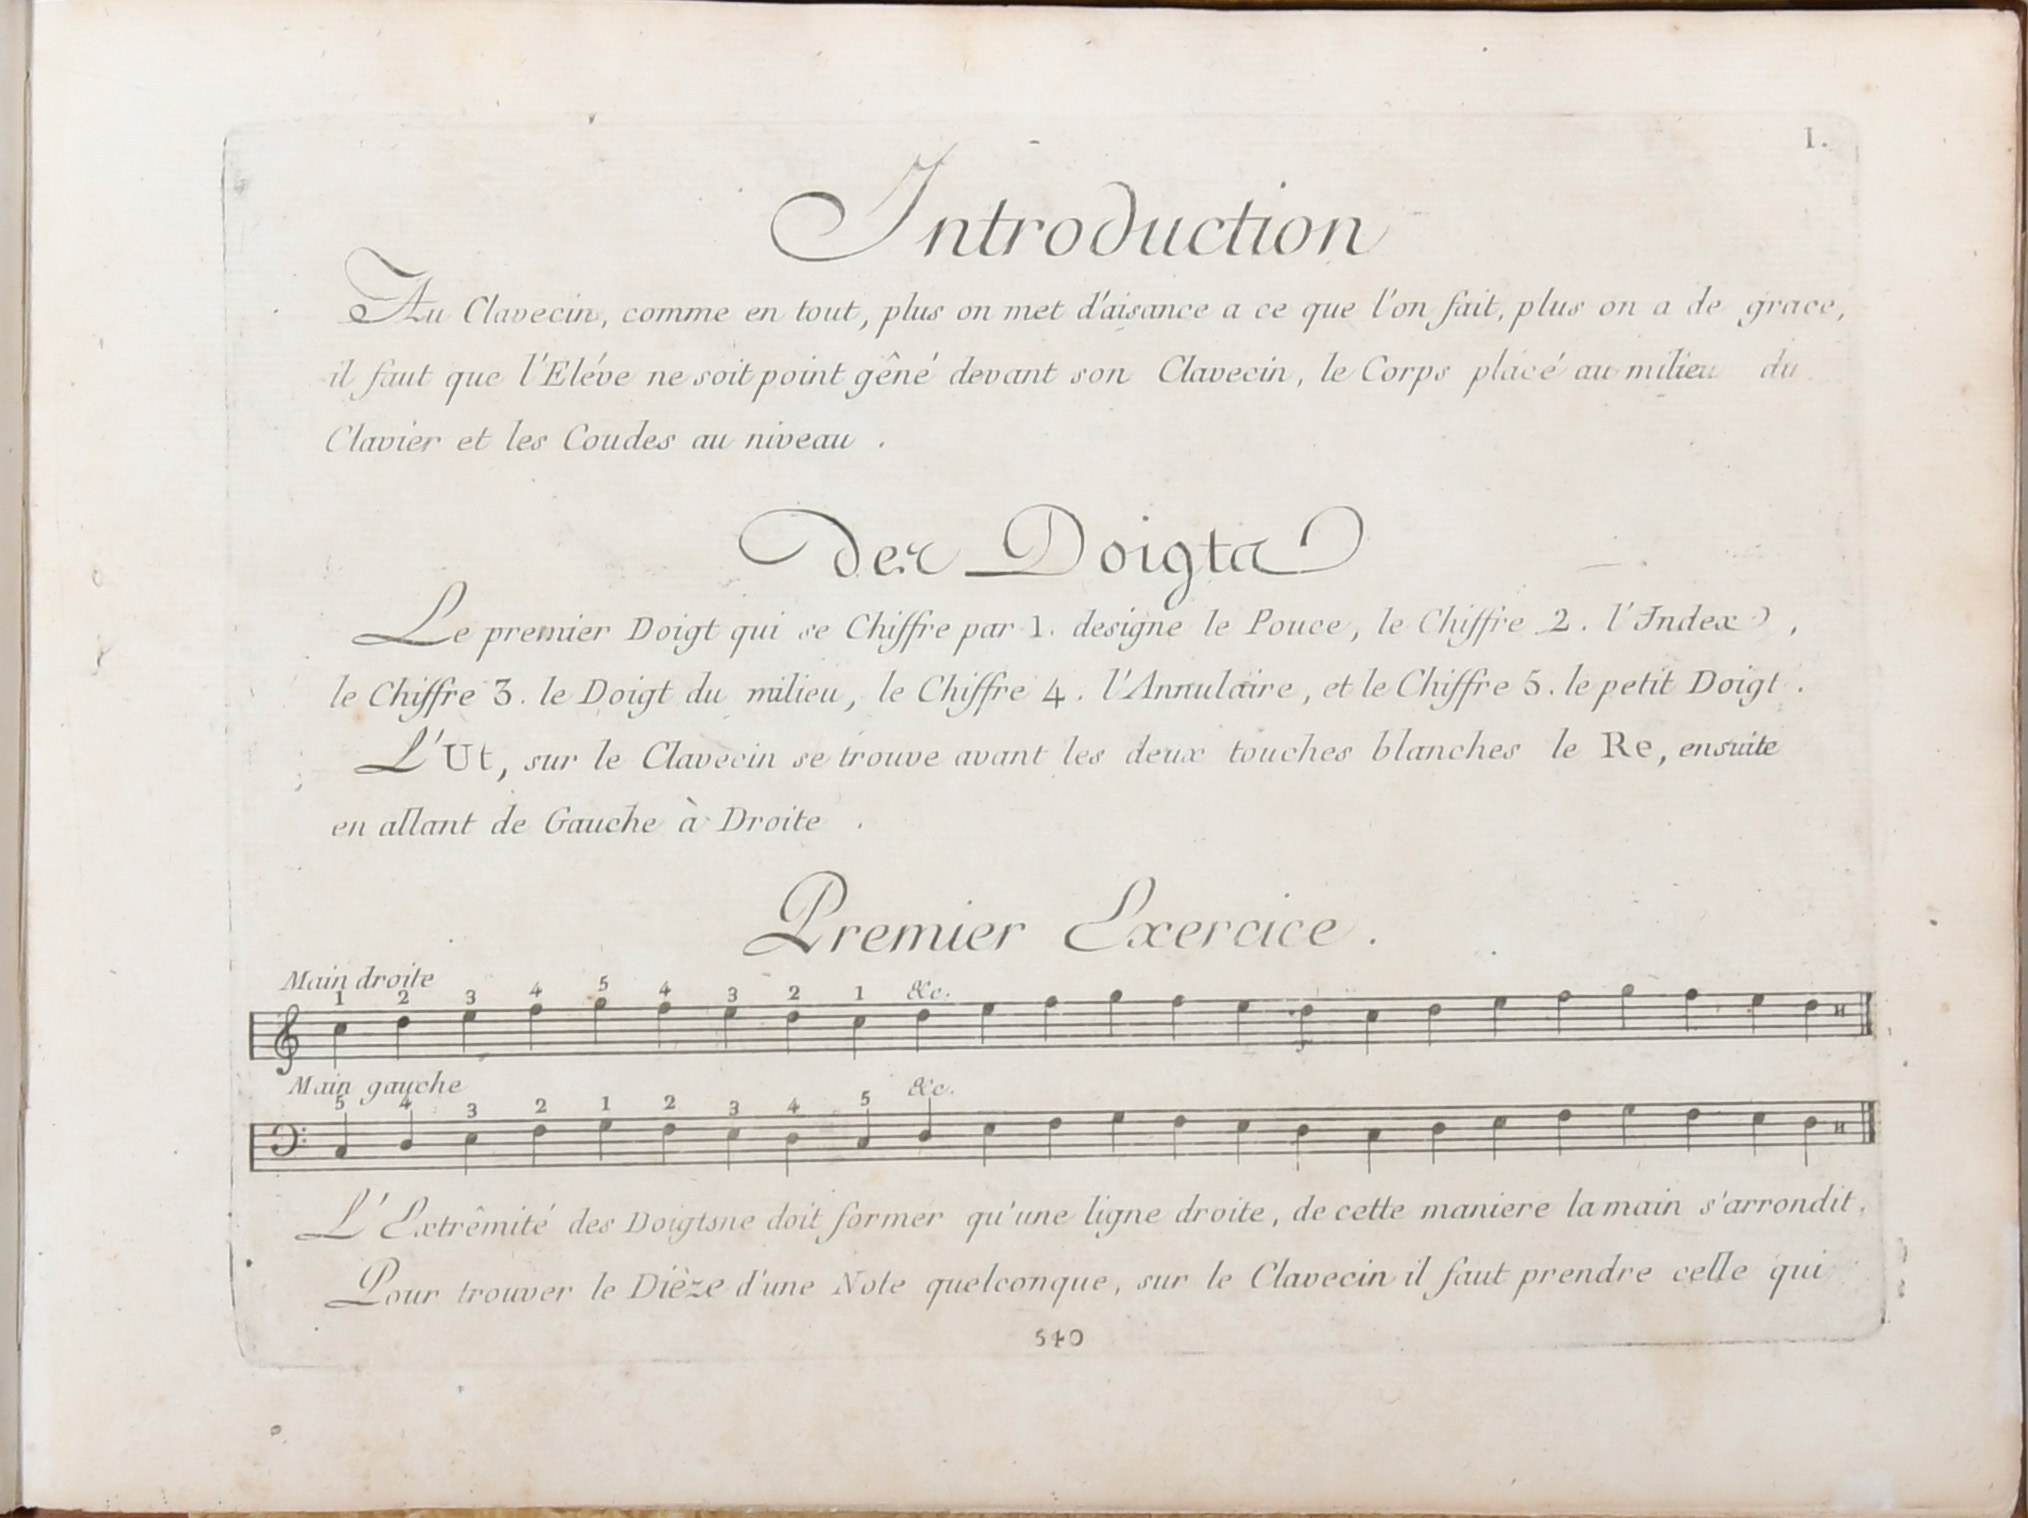 1.
Introduction
Au Clavecin, comme en tout, plus on met d'aisance a ce que l'on fait, plus on a de grace,
il faut que l'Eléve ne soit point gêné devant son Clavecin, le Corps placé au milieu du
Clavier et les Coudes au niveau .
des Doigts
Le premier Doigt qui se Chiffre par 1. designe le Pouce, le Chiffre 2. l'Index ,
le Chiffre 3. le Doigt du milieu, le Chiffre 4. l'Annulaire, et le Chiffre 5. le petit Doigt .
L'Ut, sur le Clavecin se trouve avant les deux touches blanches le Re, ensuite
en allant de Gauche à Droite .
Premier Exercice .
Main droite
1 2 3 4 5 4 3 2 1 &c.
Main gauche
5 4 3 2 1 2 3 4 5 &c.
L'Extrêmité des Doigtsne doit former qu'une ligne droite, de cette maniere la main s'arrondit.
Pour trouver le Dièze d'une Note quelconque, sur le Clavecin il faut prendre celle qui
540